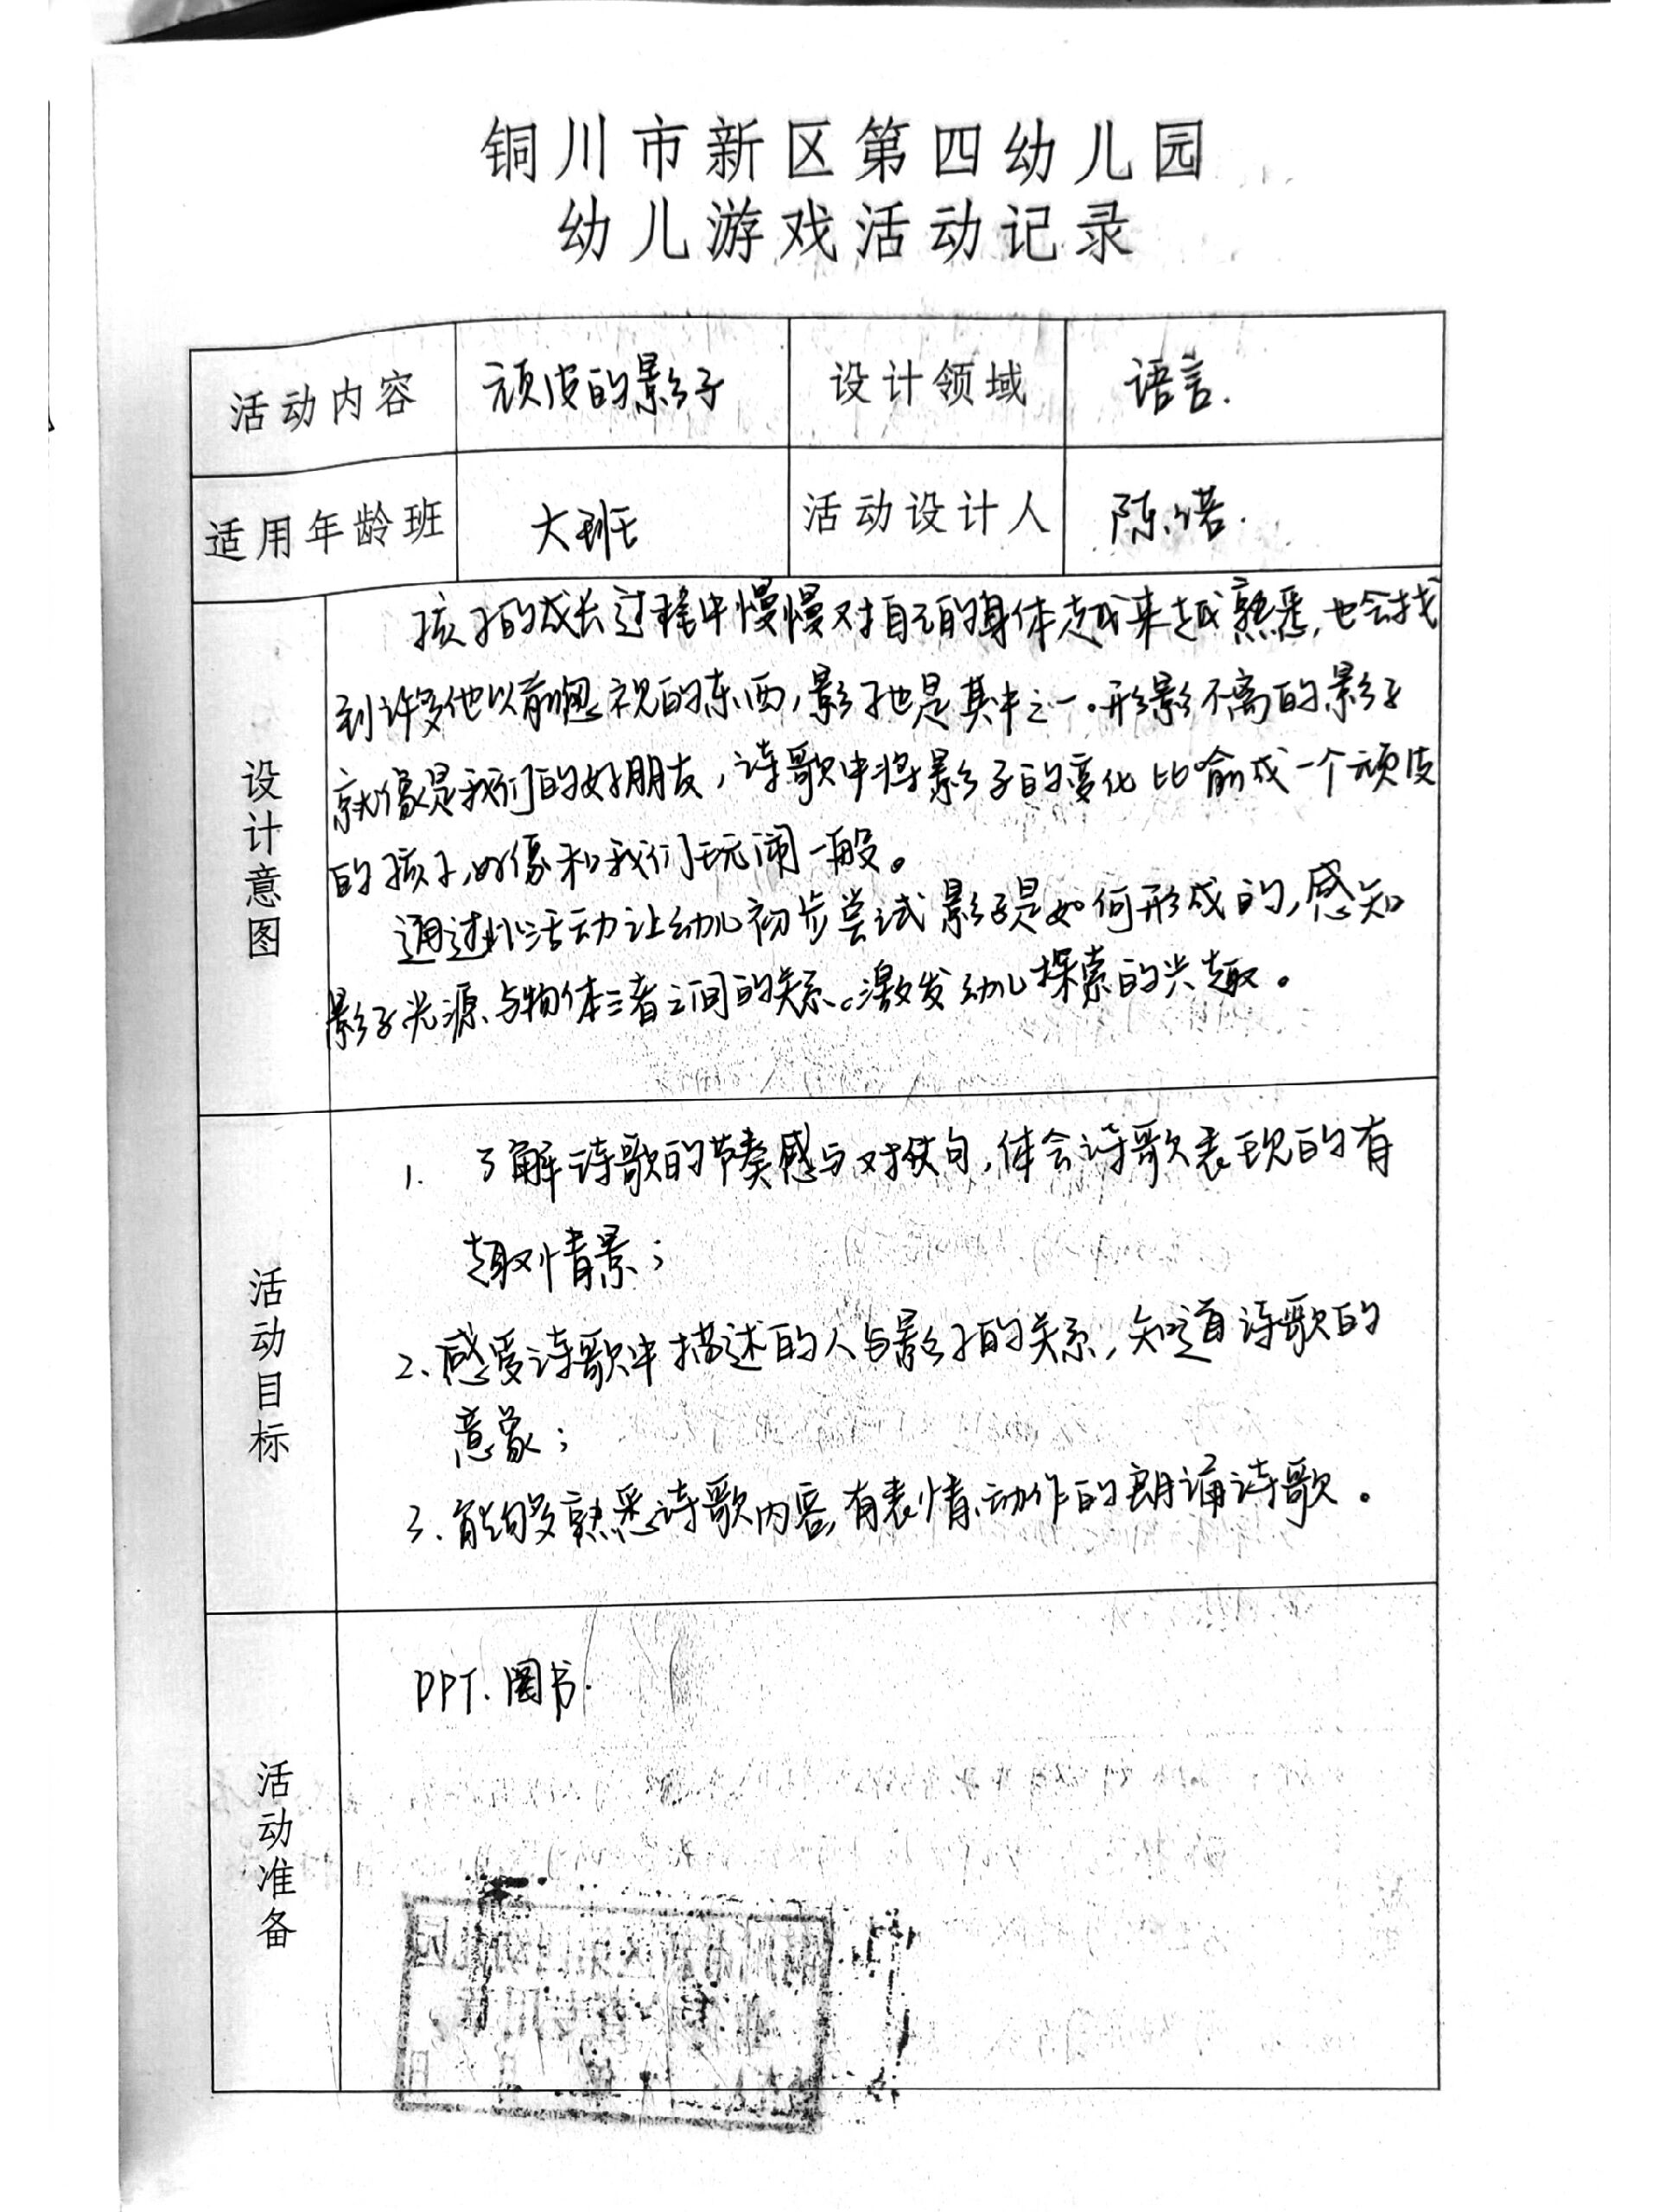 铜川市新区第四幼儿园
幼儿游戏活动记录
活动内容 顽皮的影子 设计领域 语言.
适用年龄班 大班 活动设计人 陈诺.
设计意图
孩子的成长过程中慢慢对自己的身体越来越熟悉,也会找
到许多他以前忽视的东西,影子也是其中之一。形影不离的影子
就像是我们的好朋友,诗歌中将影子的变化比喻成一个顽皮
的孩子,好像和我们玩闹一般。
通过此活动让幼儿初步尝试影子是如何形成的,感知
影子光源、与物体三者之间的关系。激发幼儿探索的兴趣。
活动目标
1. 了解诗歌的节奏感与对仗句,体会诗歌表现的有
趣情景;
2、感受诗歌中描述的人与影子的关系,知道诗歌的
意象;
3、能够熟悉诗歌内容,有表情、动作的朗诵诗歌。
活动准备
PPT、图书.